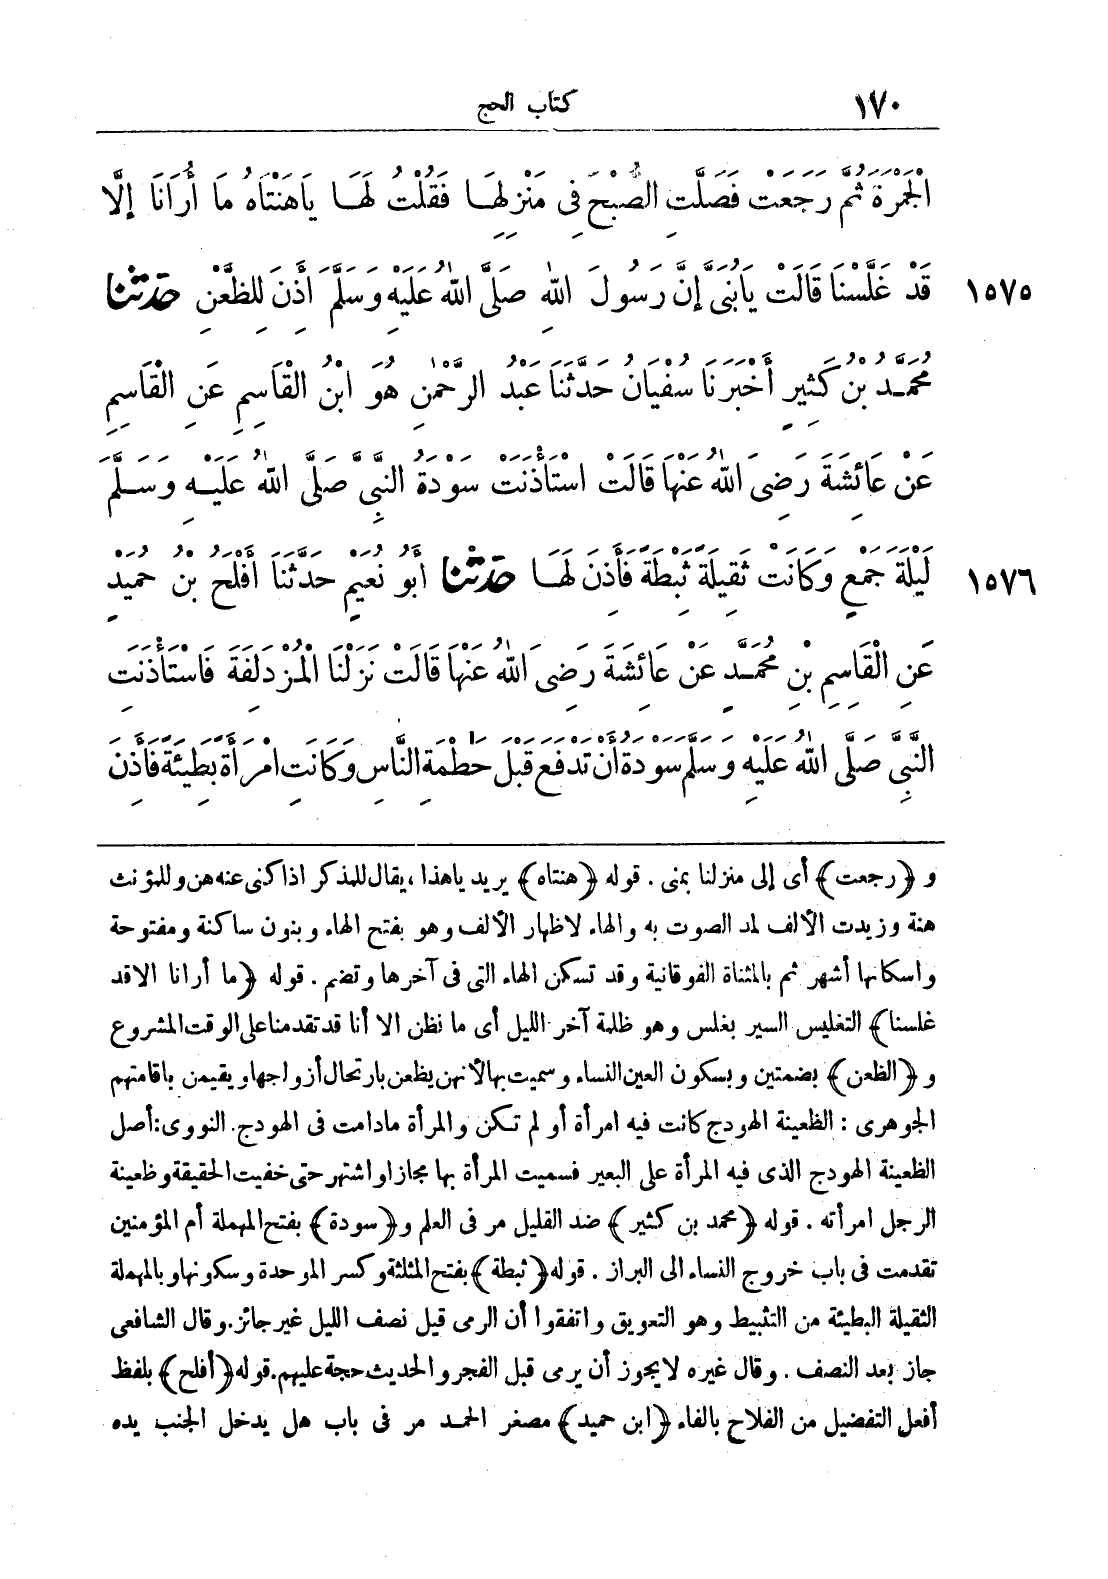 ١٧٠ كتاب الحج
الْجَمْرَةَ ثُمَّ رَجَعَتْ فَصَلَّتِ الصُّبْحَ فِى مَنْزِلِهَا فَقُلْتُ لَهَا يَاهَنْتَاهُ مَا أُرَانَا إِلَّا
١٥٧٥ قَدْ غَلَّسْنَا قَالَتْ يَابُنَىَّ إِنَّ رَسُولَ اللهِ صَلَّى اللهُ عَلَيْهِ وَسَلَّمَ أَذِنَ لِلظُّعُنِ حَدَّثَنَا
مُحَمَّدُ بْنُ كَثِيرٍ أَخْبَرَنَا سُفْيَانُ حَدَّثَنَا عَبْدُ الرَّحْمٰنِ هُوَ ابْنُ الْقَاسِمِ عَنِ الْقَاسِمِ
عَنْ عَائِشَةَ رَضِىَ اللهُ عَنْهَا قَالَتْ اسْتَأْذَنَتْ سَوْدَةُ النَّبِىَّ صَلَّى اللهُ عَلَيْهِ وَسَلَّمَ
١٥٧٦ لَيْلَةَ جَمْعٍ وَكَانَتْ ثَقِيلَةً ثَبْطَةً فَأَذِنَ لَهَا حَدَّثَنَا أَبُو نُعَيْمٍ حَدَّثَنَا أَفْلَحُ بْنُ حُمَيْدٍ
عَنِ الْقَاسِمِ بْنِ مُحَمَّدٍ عَنْ عَائِشَةَ رَضِىَ اللهُ عَنْهَا قَالَتْ نَزَلْنَا الْمُزْدَلِفَةَ فَاسْتَأْذَنَتِ
النَّبِىَّ صَلَّى اللهُ عَلَيْهِ وَسَلَّمَ سَوْدَةُ أَنْ تَدْفَعَ قَبْلَ حَطْمَةِ النَّاسِ وَكَانَتِ امْرَأَةً بَطِيئَةً فَأَذِنَ
و ﴿رجعت﴾ أى إلى منزلنا بمنى. قوله ﴿هنتاه﴾ يريد ياهذا، يقال للمذكر اذا كنى عنه هن وللمؤنث
هنة وزيدت الألف لمد الصوت به والهاء لاظهار الألف وهو بفتح الهاء وبنون ساكنة ومفتوحة
واسكانها أشهر ثم بالمثناة الفوقانية وقد تسكن الهاء التى فى آخرها وتضم. قوله ﴿ما أرانا الا قد
غلسنا﴾ التغليس السير بغلس وهو ظلمة آخر الليل أى ما نظن الا أنا قد تقدمنا على الوقت المشروع
و ﴿الظعن﴾ بضمتين وبسكون العين النساء وسميت بها لأنهن يظعن بارتحال أزواجها ويقيمن باقامتهم
الجوهرى: الظعينة الهودج كانت فيه امرأة أو لم تكن والمرأة مادامت فى الهودج. النووى: أصل
الظعينة الهودج الذى فيه المرأة على البعير فسميت المرأة بها مجازا واشتهر حتى خفيت الحقيقة وظعينة
الرجل امرأته. قوله ﴿محمد بن كثير﴾ ضد القليل مر فى العلم و﴿سودة﴾ بفتح المهملة أم المؤمنين
تقدمت فى باب خروج النساء الى البراز. قوله ﴿ثبطة﴾ بفتح المثلثة وكسر الموحدة وسكونها وبالمهملة
الثقيلة البطيئة من التثبيط وهو التعويق واتفقوا أن الرمى قبل نصف الليل غير جائز. وقال الشافعى
جاز بعد النصف. وقال غيره لا يجوز أن يرمى قبل الفجر والحديث حجة عليهم. قوله ﴿أفلح﴾ بلفظ
أفعل التفضيل من الفلاح بالفاء ﴿ابن حميد﴾ مصغر الحمد مر فى باب هل يدخل الجنب يده